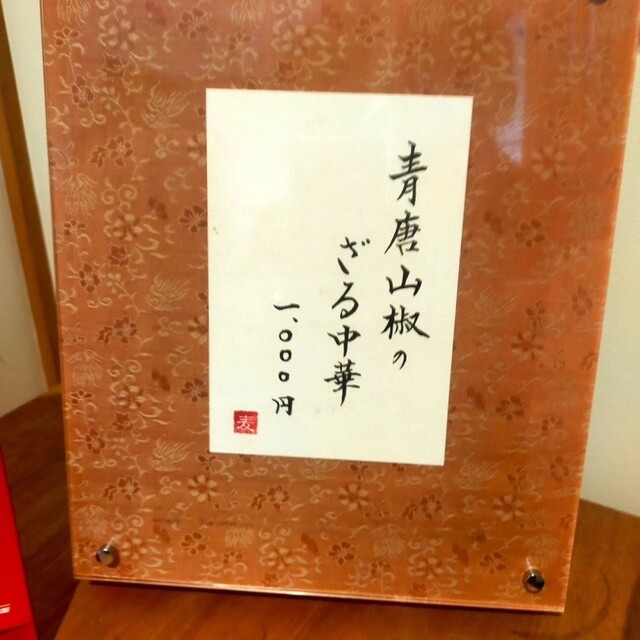 青唐山椒の
ざる中華
一、〇〇〇円
麦